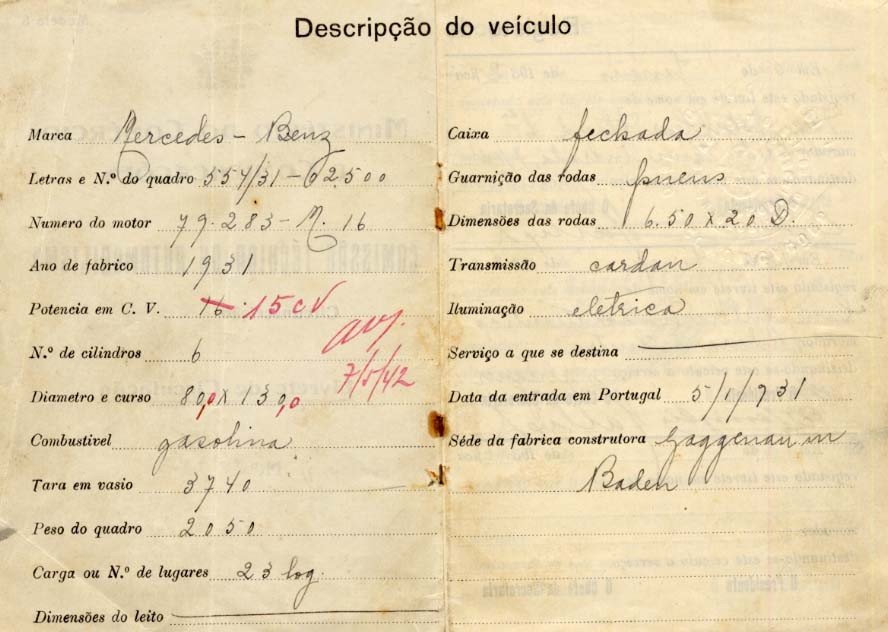 Descripção do veículo
Marca Mercedes - Benz
Letras e N.º do quadro 554/31 - 62.500
Numero do motor 79.283 - M. 16
Ano de fabrico 1931
Potencia em C. V. 16 15 CV
N.º de cilindros 6
7/5/42
Diametro e curso 80,0 x 130,0
Combustivel gasolina
Tara em vasio 3740
Peso do quadro 2050
Carga ou N.º de lugares 23 log.
Dimensões do leito
Caixa fechada
Guarnição das rodas pneus
Dimensões das rodas 6.50 x 20 D.
Transmissão cardan
Iluminação eletrica
Serviço a que se destina
Data da entrada em Portugal 5/1/931
Séde da fabrica construtora Gaggenau in
Baden